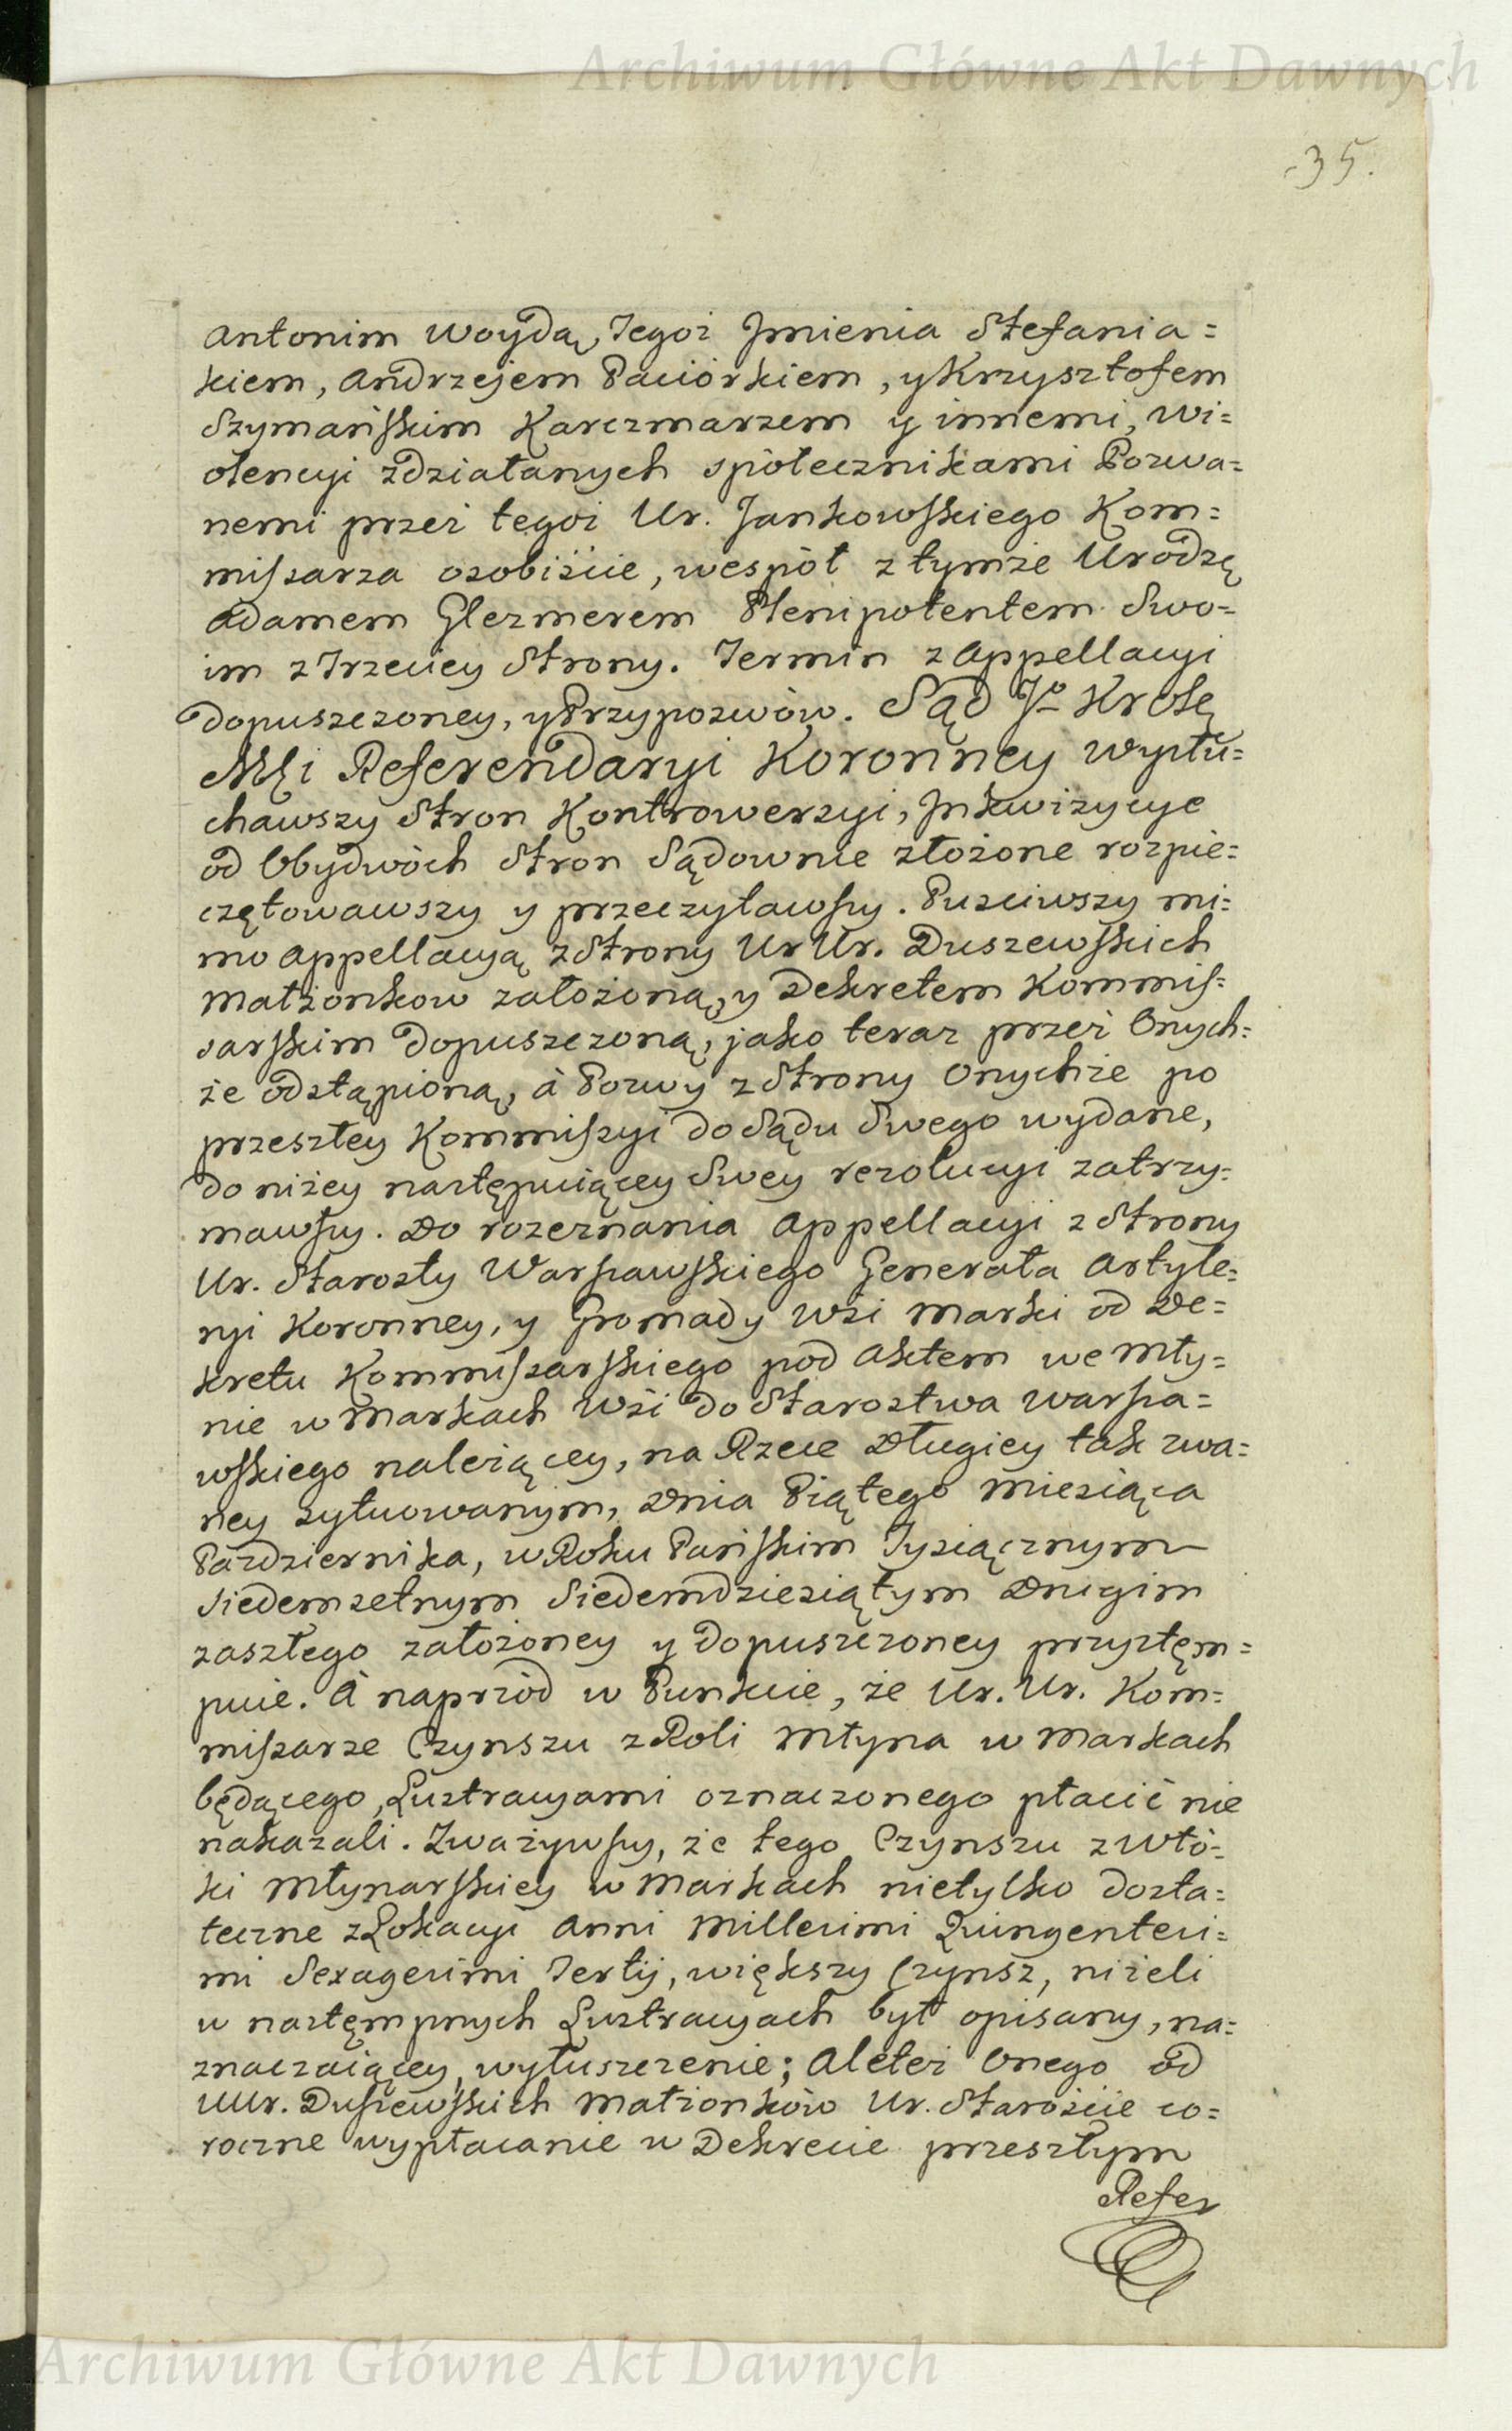 Archiwum Główne Akt Dawnych
35.
Antonim Woydą, Tegoż Jmienia Stefania=
kiem, Andrzejem Paciórkiem, y Krzysztofem
Szymańskim Karczmarzem y innemi, wi=
olencyi zdziałanych spólecznikami Pozwa=
nemi przez tegoż Ur. Jankowskiego Kom=
missarza osobiście, wespół z tymże Urodzę
Adamem Glezmerem Plenipotentem Swo=
im z Trzeciey Strony. Termin z Appellacyi
dopuszczoney, y Przypozwów. Sąd Jº Krolę
Młi Referendaryi Koronney wysłu=
chawszy Stron Kontrowersyi, Jnkwizycye
od Obydwóch Stron Sądownie złożone rozpie=
czętowawszy y przeczytawszy. Pusciwszy mi=
mo Appellacyą z Strony Ur Ur. Duszewskich
Małżonkow założoną, y Dekretem Kommis=
sarskim dopuszczoną, jako teraz przez Onych=
że odstąpioną, à Pozwy z Strony Onychże po
przeszłey Kommissyi do Sądu Swego wydane,
do niżey następuiącey Swey rezolucyi zatrzy=
mawszy. Do rozeznania Appellacyi z Strony
Ur. Starosty Warszawskiego Generała Artyle=
ryi Koronney, y Gromady Wsi Marki od De=
kretu Kommissarskiego pod Aktem we Mły=
nie w Markach Wsi do Starostwa Warsza=
wskiego należącey, na Rzece Długiey tak zwa=
ney sytuowanym, Dnia Piątego Miesiąca
Pazdziernika, w Roku Pańskim Tysiącznym
Siedemsetnym Siedemdziesiątym Drugim
zaszłego założoney y dopuszczoney przystęm=
puie. À naprzód w Punkcie, że Ur. Ur. Kom=
missarze Czynszu z Roli Młyna w Markach
będącego, Lustracyami oznaczonego płacić nie
nakazali. Zważywszy, że tego Czynszu z Włó=
ki Młynarskiey w Markach nietylko dosta=
teczne z Lokacyi Anni Millesimi Quingentesi=
mi Sexagesimi Tertij, większy Czynsz, niżeli
w nastęmpnych Lustracyach był opisany, na=
znaczaiącey, wyłuszczenie; Aleteż Onego od
UUr. Duszewskich Małżonków Ur. Staroście co=
roczne wypłacanie w Dekrecie przeszłym
Refer
Archiwum Główne Akt Dawnych